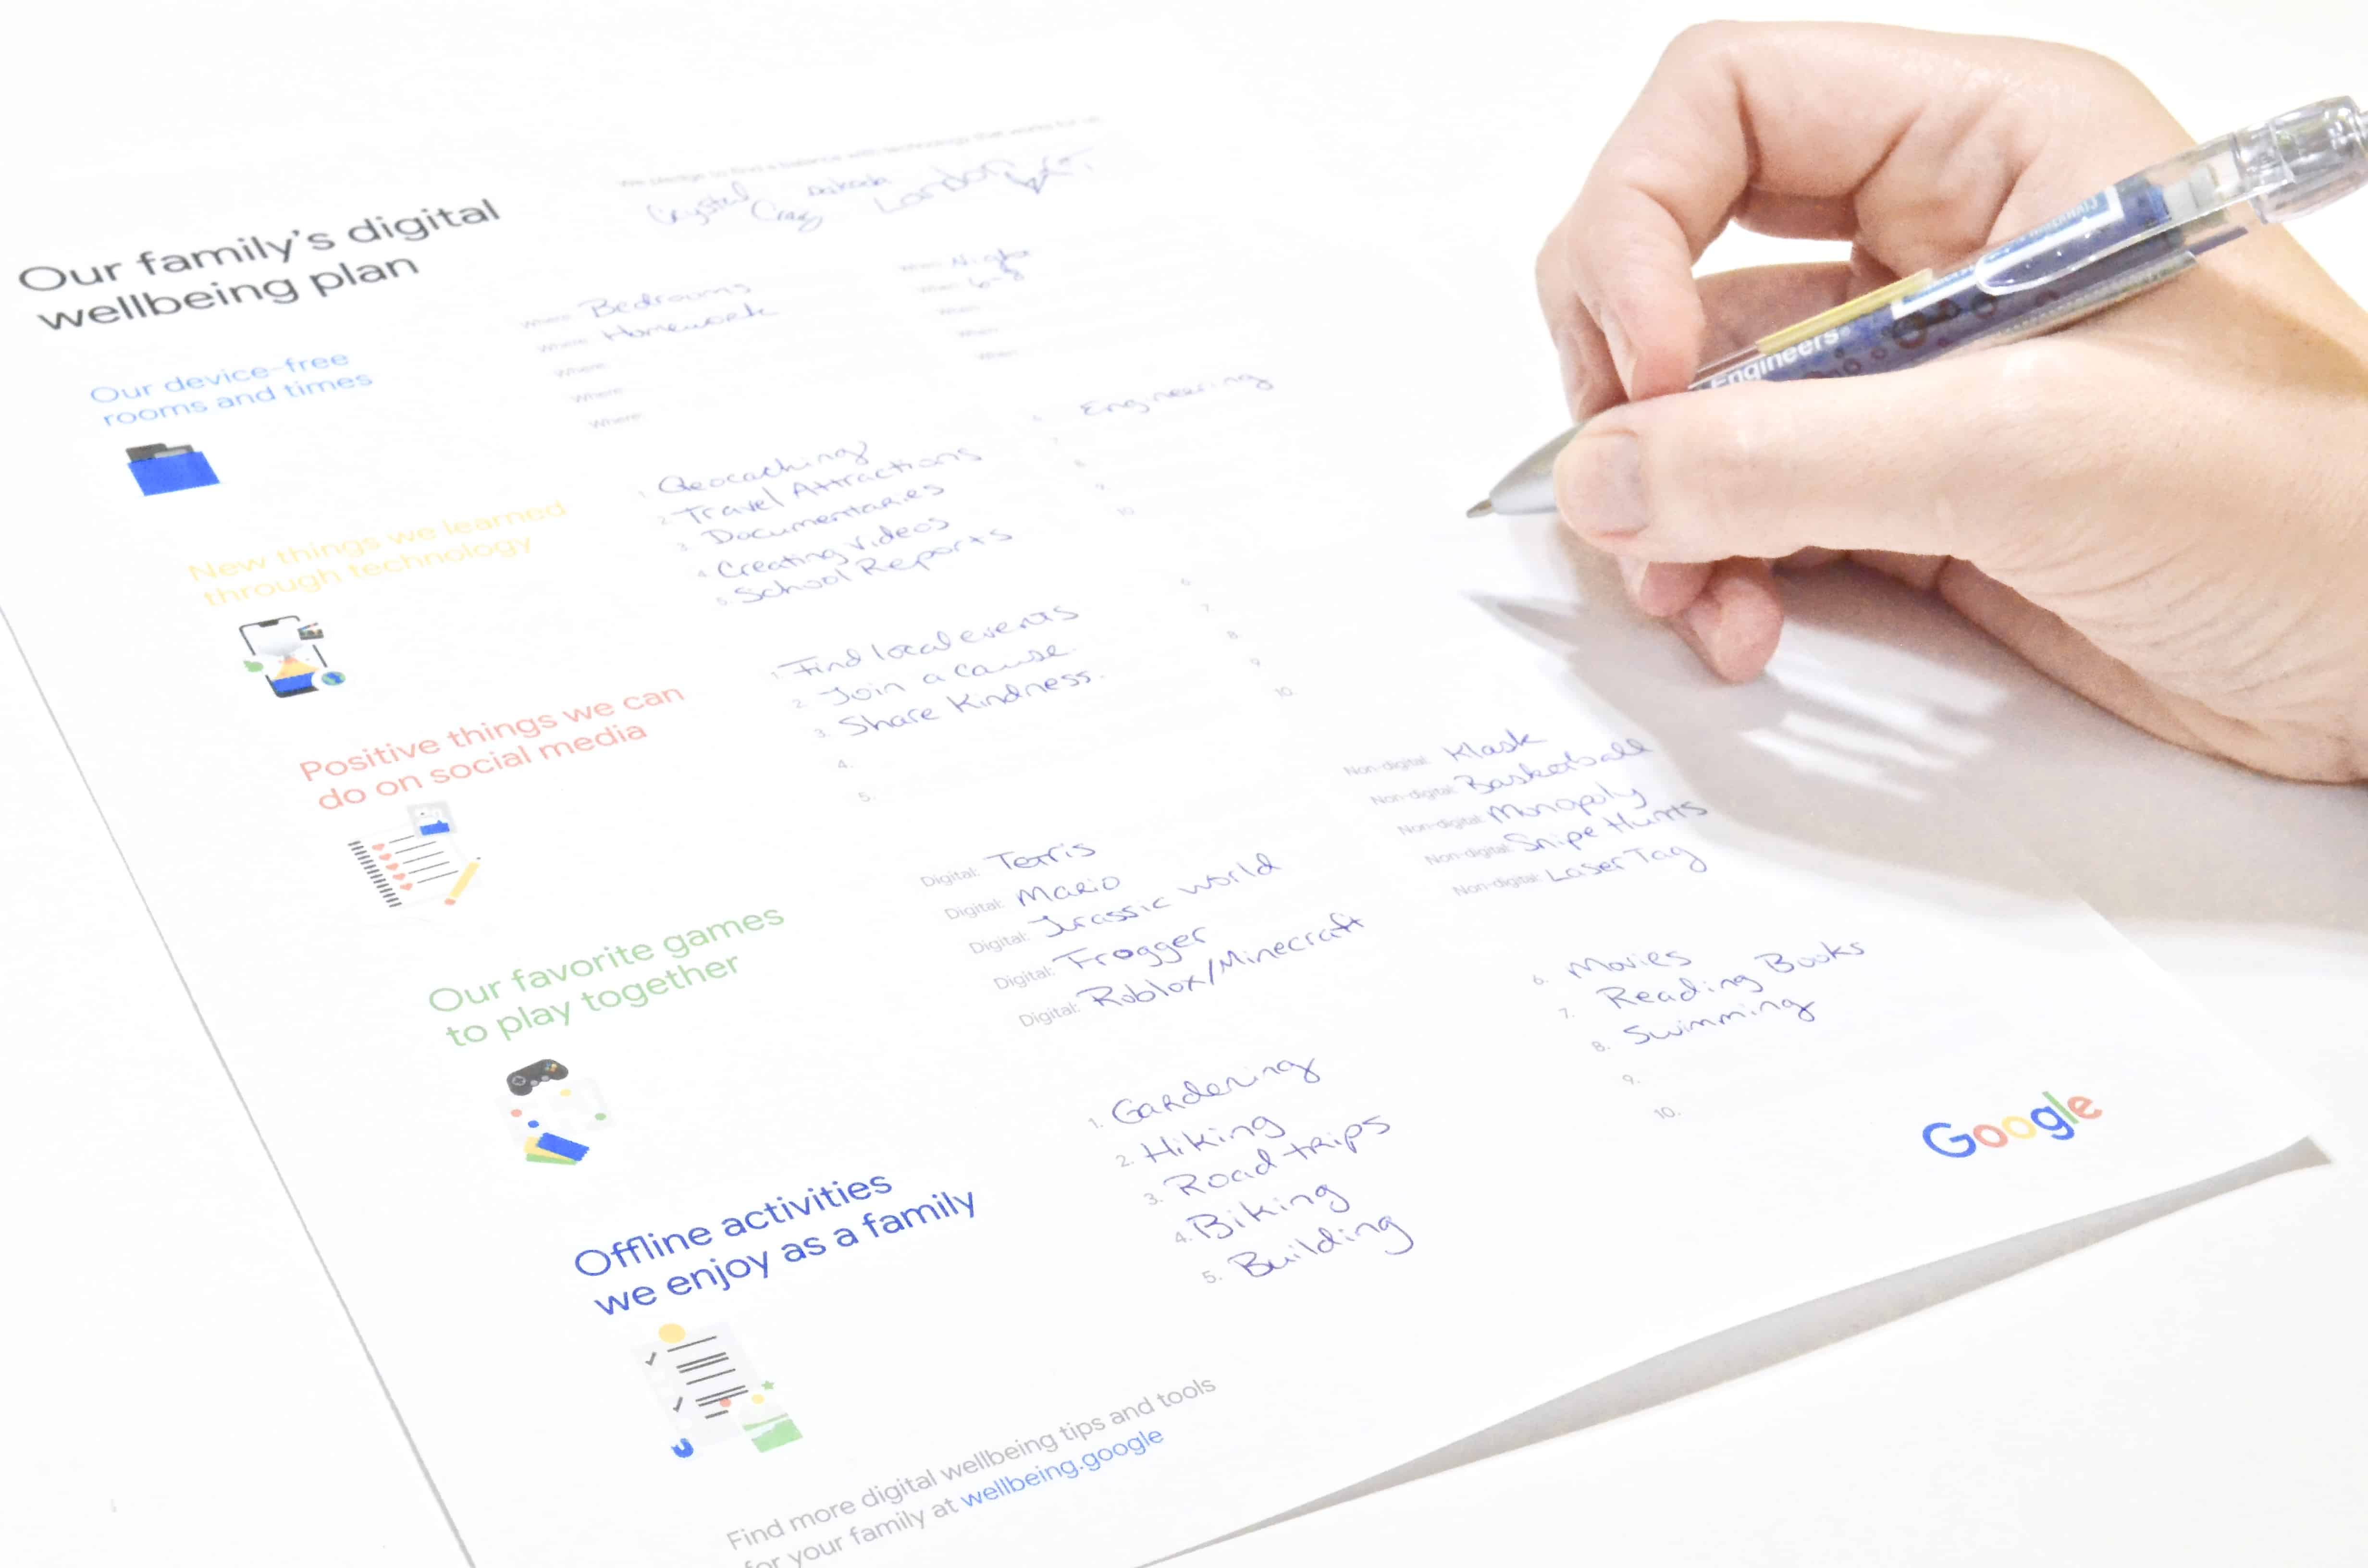 We pledge to find a balance with technology that works for us
Crystal Craig Dakoda London
Our family's digital
wellbeing plan
Our device-free
rooms and times
Where: Bedrooms
Where: Homework
Where:
Where:
Where:
When: Night
When: 6-8
When:
When:
When:
New things we learned
through technology
1. Geocaching
2. Travel Attractions
3. Documentaries
4. Creating videos
5. School Reports
6. Engineering
7.
8.
9.
10.
Positive things we can
do on social media
1. Find local events
2. Join a cause.
3. Share Kindness.
4.
5.
6.
7.
8.
9.
10.
Our favorite games
to play together
Digital: Tetris
Digital: Mario
Digital: Jurassic world
Digital: Frogger
Digital: Roblox/Minecraft
Non-digital: Klask
Non-digital: Basketball
Non-digital: Monopoly
Non-digital: Snipe Hunts
Non-digital: Laser Tag
Offline activities
we enjoy as a family
1. Gardening
2. Hiking
3. Road trips
4. Biking
5. Building
6. Movies
7. Reading Books
8. Swimming
9.
10.
Find more digital wellbeing tips and tools
for your family at wellbeing.google
Google
Engineers